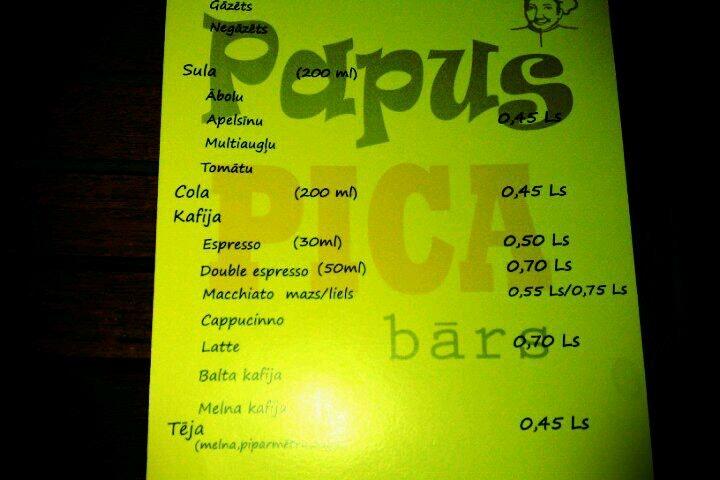 Gāzēts
Negāzēts
Papus
Sula (200 ml)
Ābolu
Apelsīnu 0,45 Ls
Multiaugļu
Tomātu
PICA
Cola (200 ml) 0,45 Ls
Kafija
Espresso (30ml) 0,50 Ls
Double espresso (50ml) 0,70 Ls
Macchiato mazs/liels 0,55 Ls/0,75 Ls
Cappucinno
bārs
Latte 0,70 Ls
Balta kafija
Melna kafija
Tēja 0,45 Ls
(melna,piparmētru